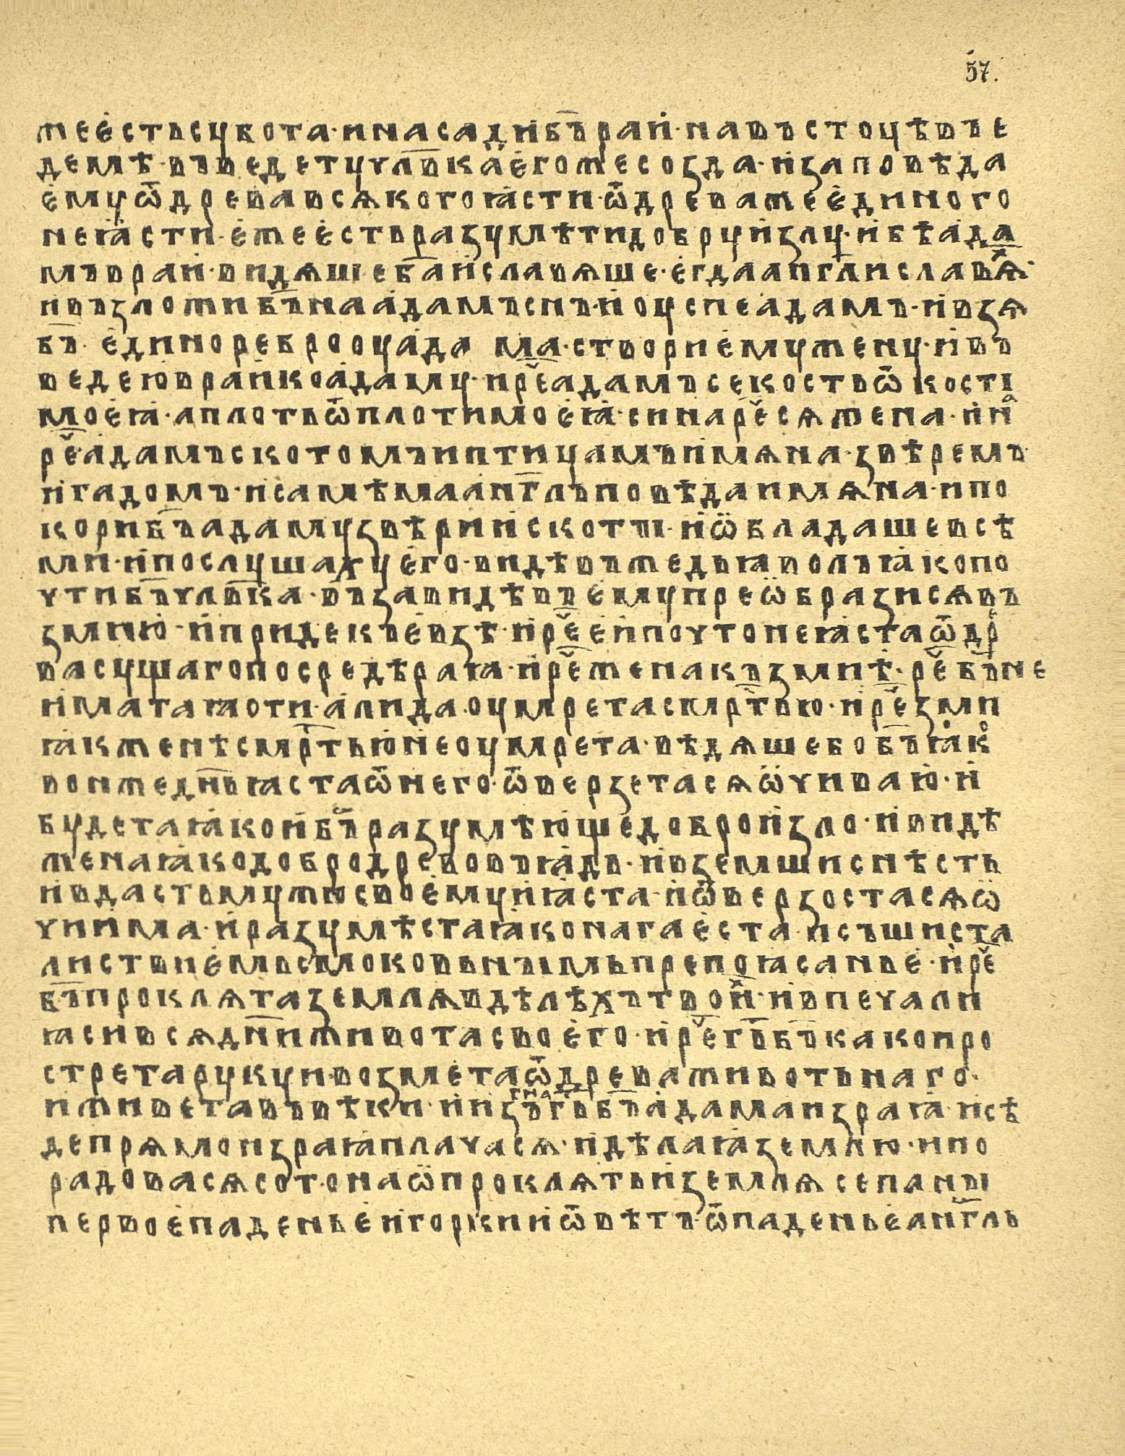 57.
же є́сть сꙋбота · и насади бъ҃ раи̇ · на въстоцѣ въ е
демѣ · въведет ꙋ члв҃ка є́гоже созда · и҆ заповѣда
є҆мꙋ ѿ древа всѧкого ꙗсти · ѿ древа же є҆диного
не ꙗ҆сти · є҆же є҆сть разꙋмѣти добрꙋ и҆ злꙋ · и҆ бѣ а҆да
мъ в раи · видѧше ба҃ и҆ славѧше · є҆гда анг҃ли славѧ̾ ·
и҆ възложи бъ҃ на а҆дамъ снъ · и҆ оуспе адамъ · и҆ взѧ
бъ҃ є҆дино ребро оу а҆дама · створи є҆мꙋ женꙋ · и҆ въ
веде ю҆ в раи҆ ко а҆дамꙋ · и ре҃ адамъ се кость ѿ кості
моє҆ꙗ҆ · а плоть ѿ плоти моє҆ꙗ҆ · си наре҃сѧ жена · и҆ н
ре҃ а҆дамъ скотомъ и птицамъ и҆мѧна · звѣремъ
и҆ гадомъ · и҆ самѣма а҆нг҃лъ повѣда имѧна · и по
кори бъ҃ адамꙋ звѣри и҆ скотꙑ · и҆ ѡ҆бладаше всѣ
ми · и҆ послꙋшахꙋ є҆го · видѣвъ же дьꙗволъ ꙗ҆ко по
чти бъ҃ члв҃ка · възавидѣвъ є҆мꙋ преѡ҆бразисѧ въ
змию҆ · и҆ приде къ є҆взѣ · и҆ ре҃ є҆и҆ почто не ꙗста ѿ др
ва сꙋщаго посредѣ раꙗ · и҆ ре҃ жена къ змиѣ · ре҃ бъ҃ не
и҆мата ꙗоти · а҆ли да оумрета смрт҃ью · и ре҃ зми
ꙗ҆к женѣ смрт҃ью не оумрета · вѣдѧше бо бъ҃ ꙗ҆к
во н же дн҃ь ꙗста ѿ него · ѿверзетасѧ ѡ҆чи ваю҆ · и҆
бꙋдета ꙗ҆ко и҆ бъ҃ разꙋмѣю҆ще добро и҆ зло · и҆ видѣ
жена ꙗ҆ко добро древо въ ꙗ҆дь · и҆ вземши снѣсть
и҆ въдасть мꙋжю своє҆мꙋ и҆ ꙗста · и҆ ѿверзостасѧ ѡ҆
чи и҆ма · и҆ разꙋмѣста ꙗ҆ко нага є҆ста · и съшиста
листвиє҆мь смоковьнъімь препоꙗсаньє҆ · и҆ ре҃
бъ҃ проклѧта землѧ въ дѣлѣхъ твои҆ · и҆ в печали
ꙗси всѧ дн҃и живота своє҆го · и҆ ре҃ гь҃ бъ҃ како про
стрета рꙋкꙋ и возмета ѿ древа животьнаго ·
и живета въ вѣки · и҆ изъгна гь҃ бъ҃ а҆дама из раꙗ҆ · и сѣ
де прѧмо из раꙗ҆ плачасѧ · и҆ дѣлаꙗ҆ землю · и по
радовасѧ сотона ѡ҆ проклѧтьи҆ землѧ се на нꙑ
первоє҆ паденьє и҆ горкии҆ ѿвѣтъ · ѿпаденьє а҆нг҃ль